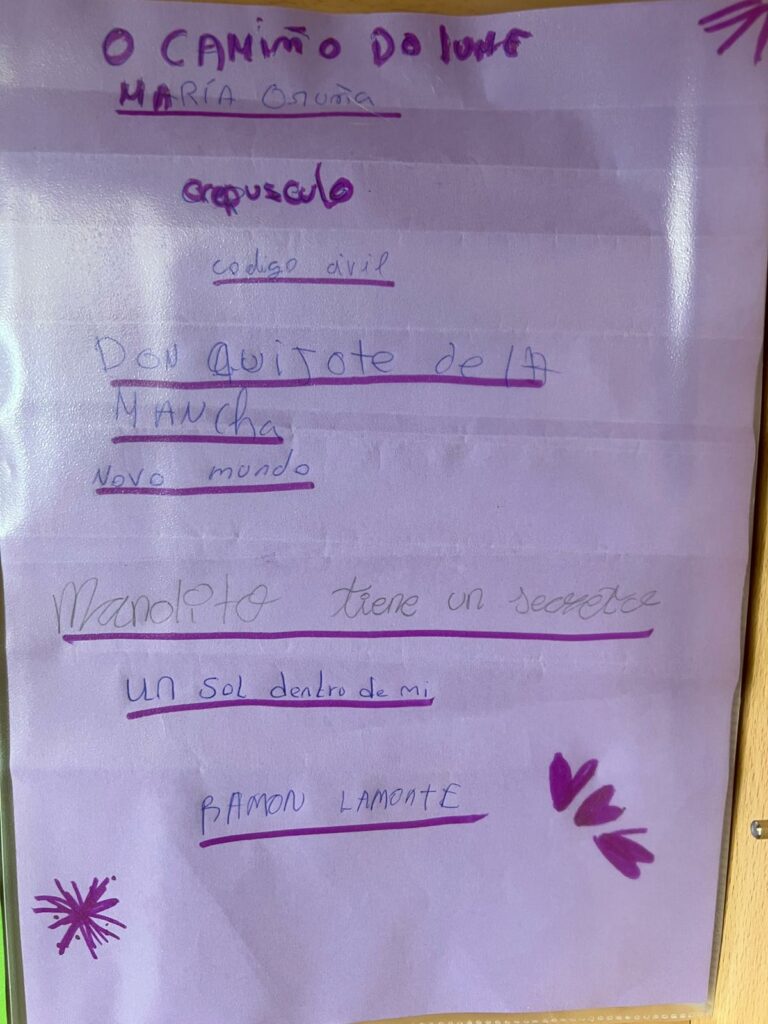 O CAMIÑO DO lUME
MARÍA Oruña
crepusculo
codigo civil
DON QUIJOTE de lA
MANCha
Novo mundo
Manolito tiene un secreto
un SOL dentro de mi
RAMON LAMONTE